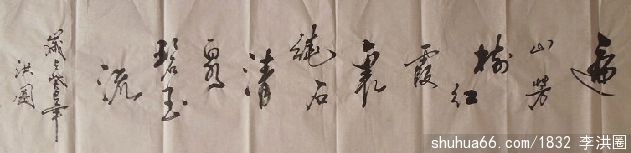 遍
山芳
樹红
霞
裹
绕石
清
泉
碧玉
流
洪圈
shuhua66.com/1832 李洪圈